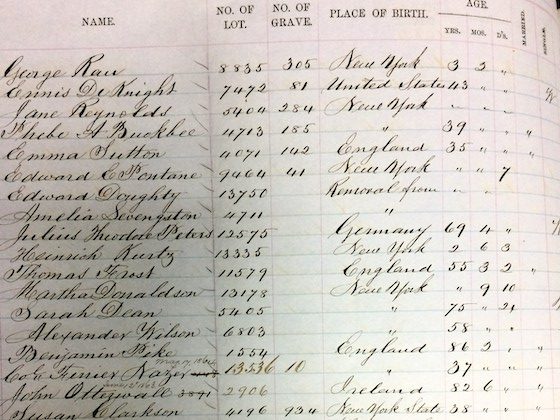 NAME. NO. OF LOT. NO. OF GRAVE. PLACE OF BIRTH. AGE. YRS. MOS. D'S. MARRIED. SINGLE.
George Rau 8835 305 New York 3 2 "
Ennis DeKnight 7472 81 United States 43 " "
Jane Reynolds 5404 284 New York " " "
Phebe A Buckbee 4713 185 " 39 " "
Emma Sutton 4071 142 England 35 " "
Edward C Fontane 9464 41 New York " " 7
Edward Doughty 13750 Removal from " "
Amelia 4711 "
Julius Theodore Peters 12575 Germany 69 4 "
Heinrich Kurtz 13335 New York 2 6 3
Thomas Frost 11579 England 55 3 2
Martha Donaldson 13178 New York " 9 10
Sarah Dean 5405 " 75 " 21
Alexander Wilson 6803 " 58 " "
Benjamin Pike 1554 England 86 2 "
13536 10 " 37 " "
John 3891 2906 Ireland 82 6 "
Susan Clarkson 4196 934 New York State 38 " "